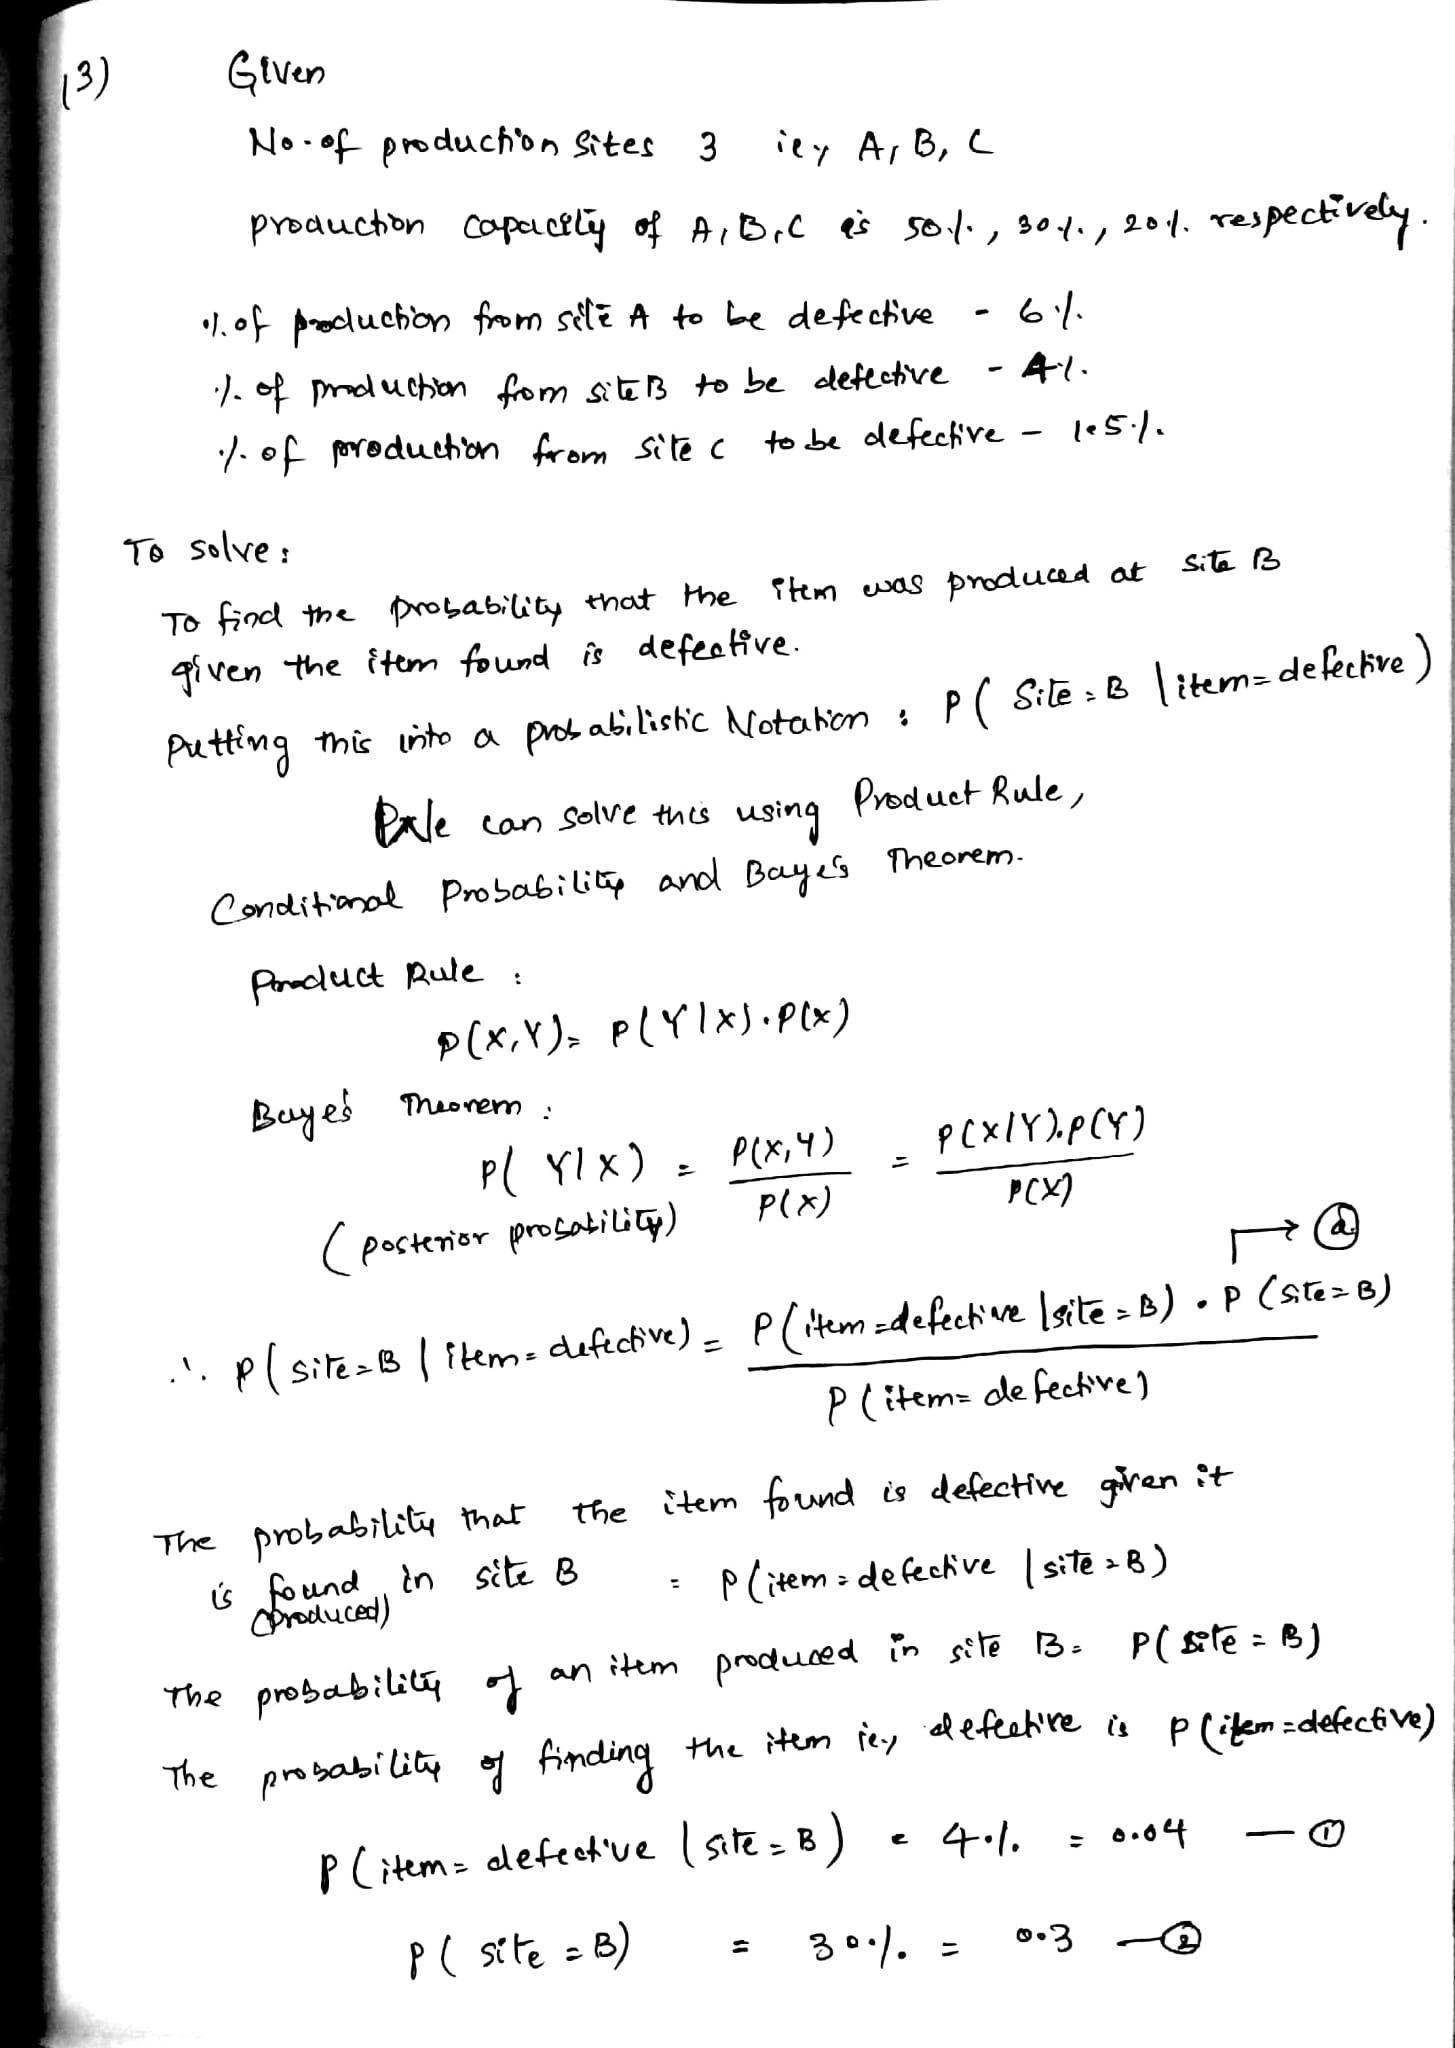 13) Given
No. of production Sites 3 ie, A, B, C
production capacity of A, B, C is 50%, 30%, 20% respectively.
% of production from site A to be defective - 6%
% of production from site B to be defective - 4%.
% of production from site C to be defective - 1.5%.
To solve:
To find the probability that the item was produced at site B
given the item found is defective.
Putting this into a probabilistic Notation : P( Site = B | item = defective )
We can solve this using Product Rule,
Conditional Probability and Baye's Theorem.
Product Rule :
P(X,Y) = P(Y|X).P(X)
Baye's Theorem :
P( Y|X ) = P(X,Y) / P(X) = P(X|Y).P(Y) / P(X)
( posterior probability)
→ ⓐ
∴ P( site = B | item = defective) = P(item = defective | site = B) . P (site = B) / P (item = defective)
The probability that the item found is defective given it
is found in site B = P(item = defective | site = B)
(produced)
The probability of an item produced in site B = P( site = B)
The probability of finding the item ie, defective is P (item = defective)
P (item = defective | site = B) = 4% = 0.04 — ①
P ( site = B) = 30% = 0.3 — ②